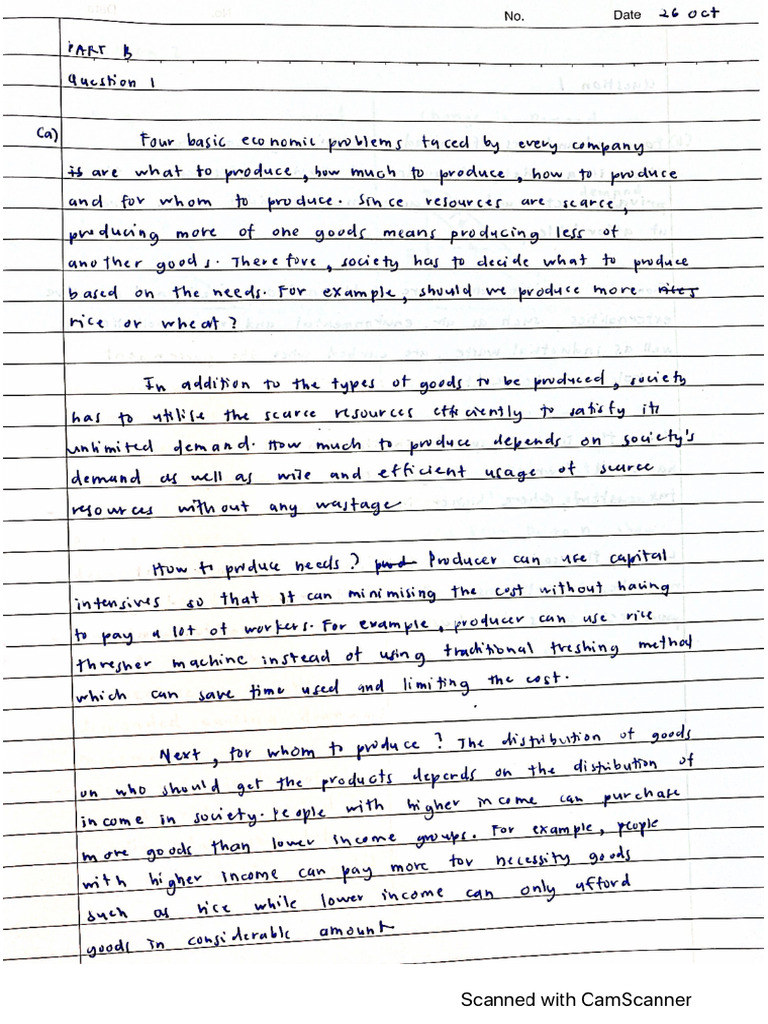 No. Date 26 Oct
PART B
Question 1
(a) Four basic economic problems faced by every company
is are what to produce, how much to produce, how to produce
and for whom to produce. Since resources are scarce,
producing more of one goods means producing less of
another goods. Therefore, society has to decide what to produce
based on the needs. For example, should we produce more rices
rice or wheat?
In addition to the types of goods to be produced, society
has to utilise the scarce resources efficiently to satisfy its
unlimited demand. How much to produce depends on society's
demand as well as wise and efficient usage of scarce
resources without any wastage
How to produce needs? prod Producer can use capital
intensives so that it can minimising the cost without having
to pay a lot of workers. For example, producer can use rice
thresher machine instead of using traditional treshing method
which can save time used and limiting the cost.
Next, for whom to produce? The distribution of goods
on who should get the products depends on the distribution of
income in society. People with higher income can purchase
more goods than lower income groups. For example, people
with higher income can pay more for necessity goods
such as rice while lower income can only afford
goods in considerable amount
Scanned with CamScanner